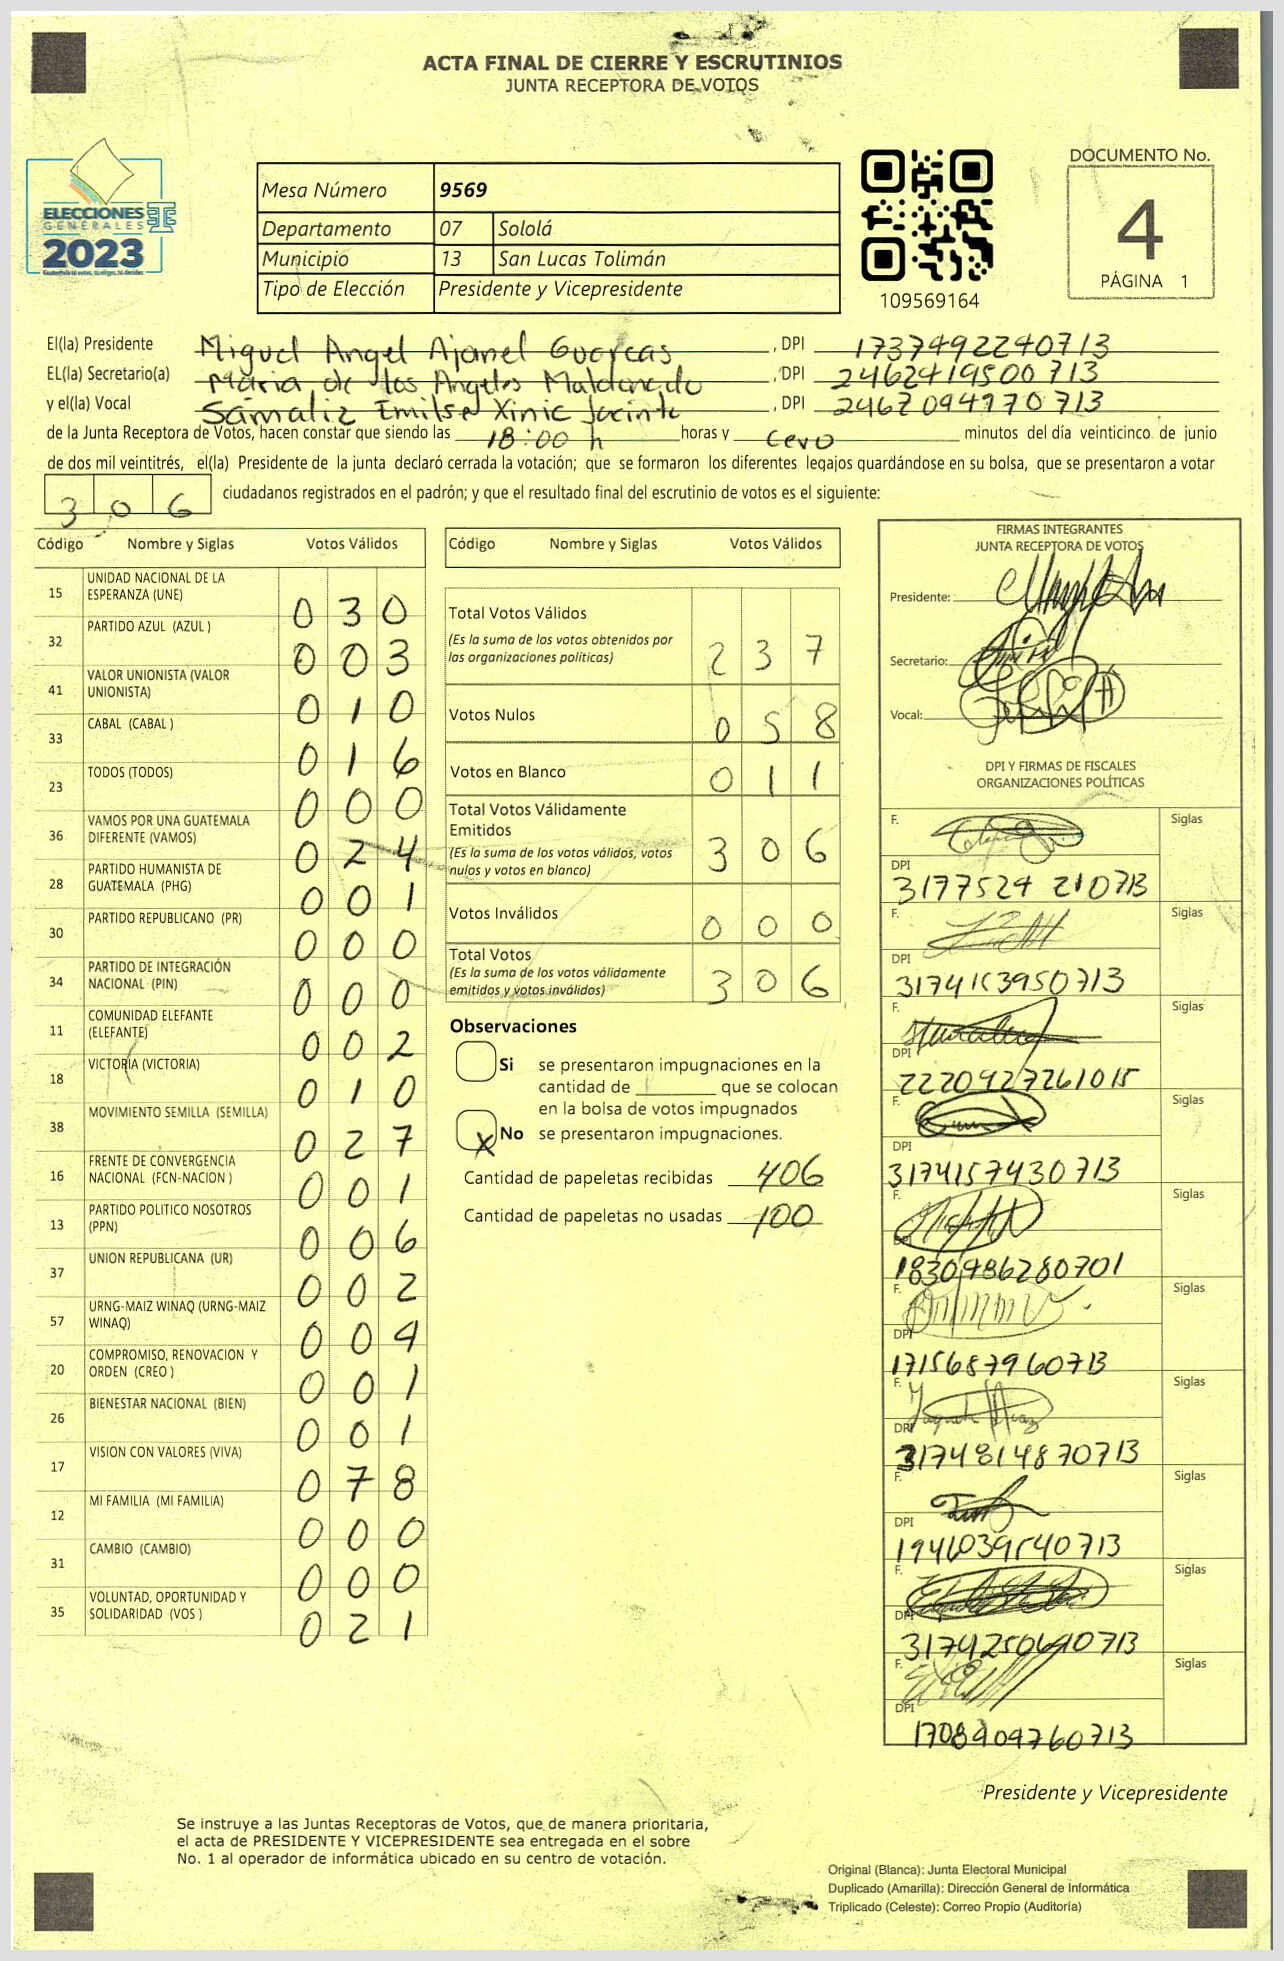 ACTA FINAL DE CIERRE Y ESCRUTINIOS
JUNTA RECEPTORA DE VOTOS
ELECCIONES
GENERALES
2023
Mesa Número 9569
Departamento 07 Sololá
Municipio 13 San Lucas Tolimán
Tipo de Elección Presidente y Vicepresidente
109569164
DOCUMENTO No.
4
PÁGINA 1
El(la) Presidente Miguel Angel Ajanel Guarcas , DPI 1737492240713
EL(la) Secretario(a) Maria de los Angeles Maldonado , DPI 2462419500713
y el(la) Vocal Samaliz Emilse Xinic Jacinto , DPI 2467094970713
de la Junta Receptora de Votos, hacen constar que siendo las 18:00 h horas y cero minutos del día veinticinco de junio
de dos mil veintitrés, el(la) Presidente de la junta declaró cerrada la votación; que se formaron los diferentes legajos guardándose en su bolsa, que se presentaron a votar
306 ciudadanos registrados en el padrón; y que el resultado final del escrutinio de votos es el siguiente:
Código Nombre y Siglas Votos Válidos
15 UNIDAD NACIONAL DE LA ESPERANZA (UNE) 030
32 PARTIDO AZUL (AZUL ) 003
41 VALOR UNIONISTA (VALOR UNIONISTA) 010
33 CABAL (CABAL ) 016
23 TODOS (TODOS) 000
36 VAMOS POR UNA GUATEMALA DIFERENTE (VAMOS) 024
28 PARTIDO HUMANISTA DE GUATEMALA (PHG) 001
30 PARTIDO REPUBLICANO (PR) 000
34 PARTIDO DE INTEGRACIÓN NACIONAL (PIN) 000
11 COMUNIDAD ELEFANTE (ELEFANTE) 002
18 VICTORIA (VICTORIA) 010
38 MOVIMIENTO SEMILLA (SEMILLA) 027
16 FRENTE DE CONVERGENCIA NACIONAL (FCN-NACION ) 001
13 PARTIDO POLITICO NOSOTROS (PPN) 006
37 UNION REPUBLICANA (UR) 002
57 URNG-MAIZ WINAQ (URNG-MAIZ WINAQ) 004
20 COMPROMISO, RENOVACION Y ORDEN (CREO ) 001
26 BIENESTAR NACIONAL (BIEN) 001
17 VISION CON VALORES (VIVA) 078
12 MI FAMILIA (MI FAMILIA) 000
31 CAMBIO (CAMBIO) 000
35 VOLUNTAD, OPORTUNIDAD Y SOLIDARIDAD (VOS ) 021
Código Nombre y Siglas Votos Válidos
Total Votos Válidos 237
(Es la suma de los votos obtenidos por
las organizaciones políticas)
Votos Nulos 058
Votos en Blanco 011
Total Votos Válidamente
Emitidos 306
(Es la suma de los votos válidos, votos
nulos y votos en blanco)
Votos Inválidos 000
Total Votos 306
(Es la suma de los votos válidamente
emitidos y votos inválidos)
Observaciones
Si se presentaron impugnaciones en la
cantidad de ________ que se colocan
en la bolsa de votos impugnados
X No se presentaron impugnaciones.
Cantidad de papeletas recibidas 406
Cantidad de papeletas no usadas 100
FIRMAS INTEGRANTES
JUNTA RECEPTORA DE VOTOS
Presidente:
Secretario:
Vocal:
DPI Y FIRMAS DE FISCALES
ORGANIZACIONES POLÍTICAS
F. Siglas
DPI
3177524 210713
F. Siglas
DPI
3174153950713
F. Siglas
DPI
2220927261015
F. Siglas
DPI
3174157430713
F. Siglas
DPI
1830986280701
F. Siglas
DPI
1715687960713
F. Siglas
DPI
3174814870713
F. Siglas
DPI
1946039540713
F. Siglas
DPI
3174250690713
F. Siglas
DPI
1708909760713
Presidente y Vicepresidente
Se instruye a las Juntas Receptoras de Votos, que de manera prioritaria,
el acta de PRESIDENTE Y VICEPRESIDENTE sea entregada en el sobre
No. 1 al operador de informática ubicado en su centro de votación.
Original (Blanca): Junta Electoral Municipal
Duplicado (Amarilla): Dirección General de Informática
Triplicado (Celeste): Correo Propio (Auditoría)